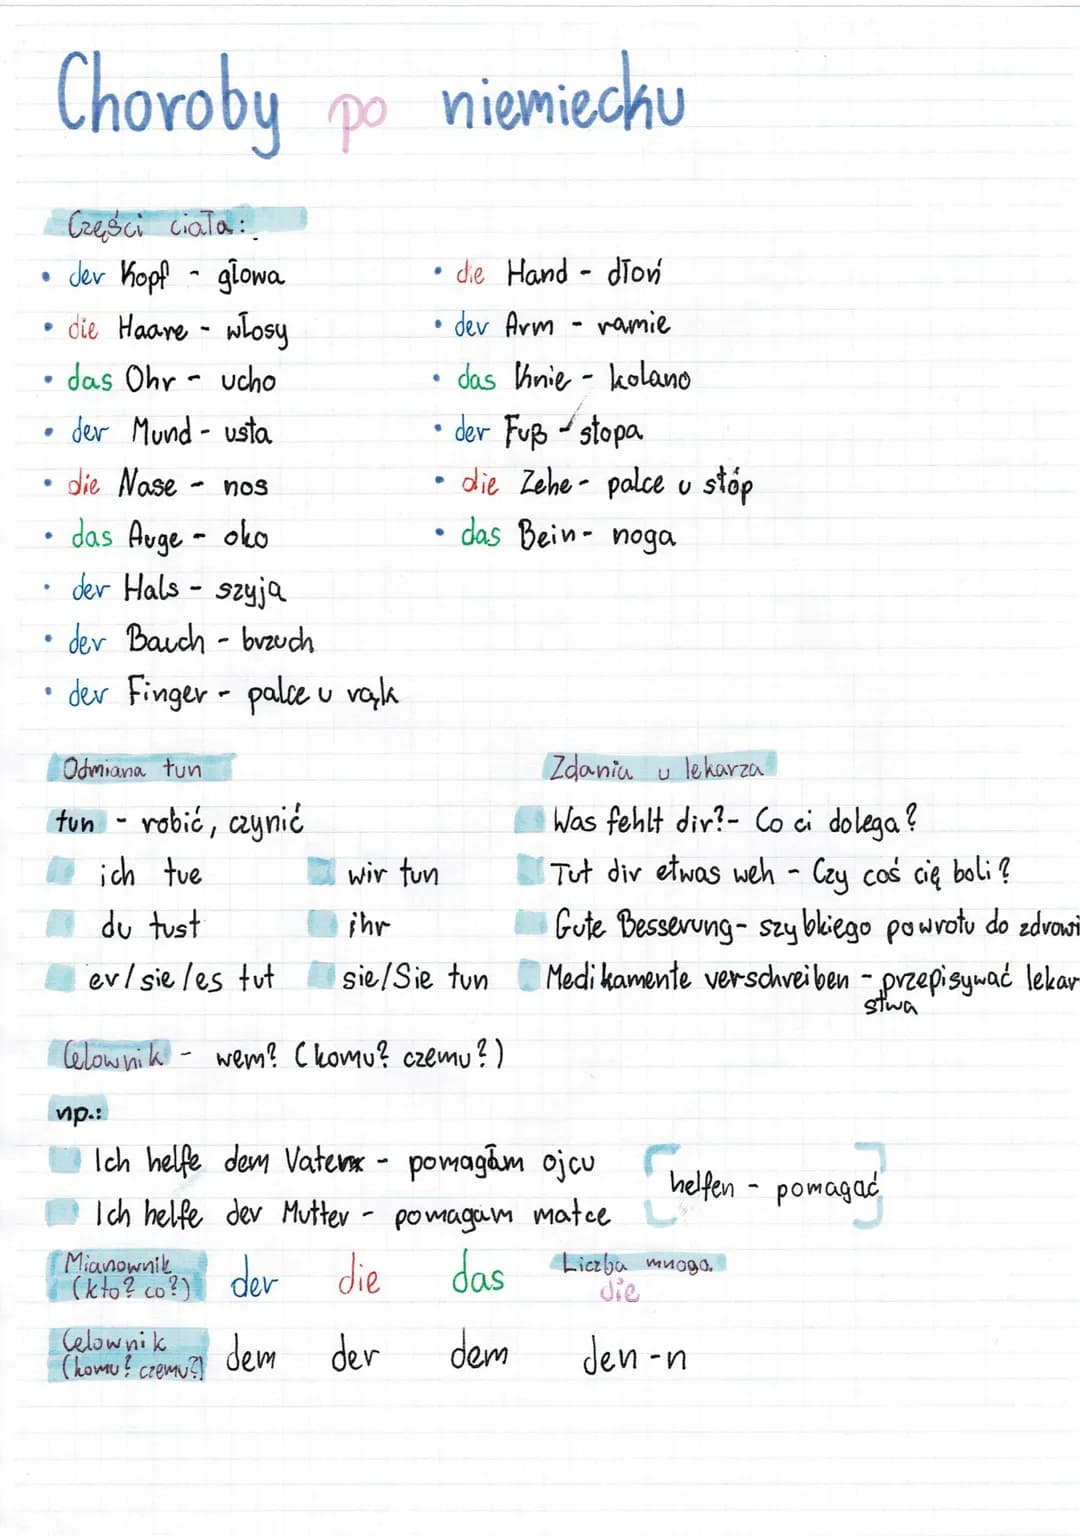 Choroby po niemiecku
Części ciała:
• der Kopf - głowa
• die Haare - włosy
• das Ohr - ucho
• der Mund - usta
• die Nase - nos
• das Auge - oko
• der Hals - szyja
• der Bauch - brzuch
• der Finger - palce u rąk
• die Hand - dłoń
• der Arm - ramie
• das Knie - kolano
• der Fuß - stopa
• die Zehe - palce u stóp
• das Bein - noga
Odmiana tun
tun - robić, czynić
ich tue
du tust
er/sie/es tut
wir tun
ihr
sie/Sie tun
Zdania u lekarza
Was fehlt dir? - Co ci dolega?
Tut dir etwas weh - Czy coś cię boli?
Gute Besserung - szybkiego powrotu do zdrowi
Medikamente verschreiben - przepisywać lekar
stwa
Celownik - wem? (komu? czemu?)
np.:
Ich helfe dem Vater - pomagam ojcu
Ich helfe der Mutter - pomagam matce
helfen - pomagać
Mianownik
(kto? co?) der die das
Liczba mnoga
die
Celownik
(komu? czemu?) dem der dem den -n